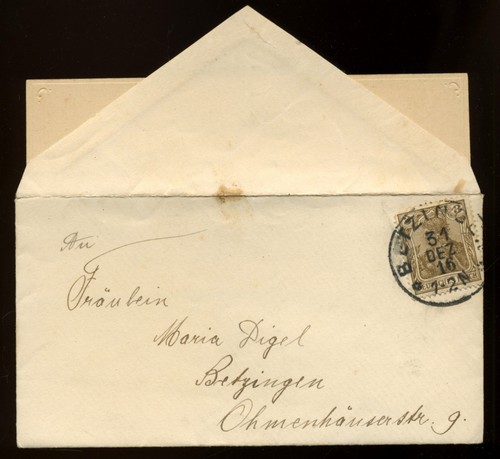 An
Fräulein
Maria Digel
Betzingen
Ohmenhäuserstr. 9.
BETZINGEN
31
DEZ
16